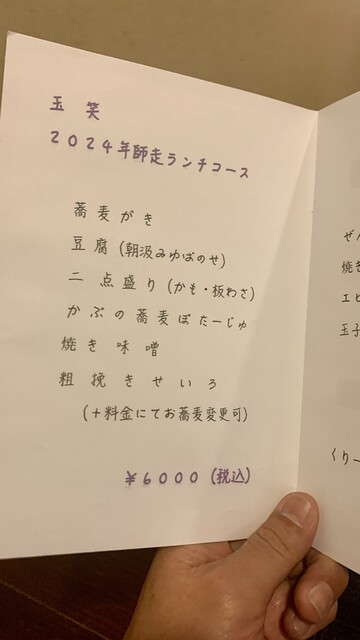 玉笑
2024年師走ランチコース
蕎麦がき
豆腐(朝汲みゆばのせ)
二点盛り(かも・板わさ)
かぶの蕎麦ぽたーじゅ
焼き味噌
粗挽きせいろ
(+料金にてお蕎麦変更可)
¥6000(税込)
ぜん
焼き
エビ
玉子
くりー